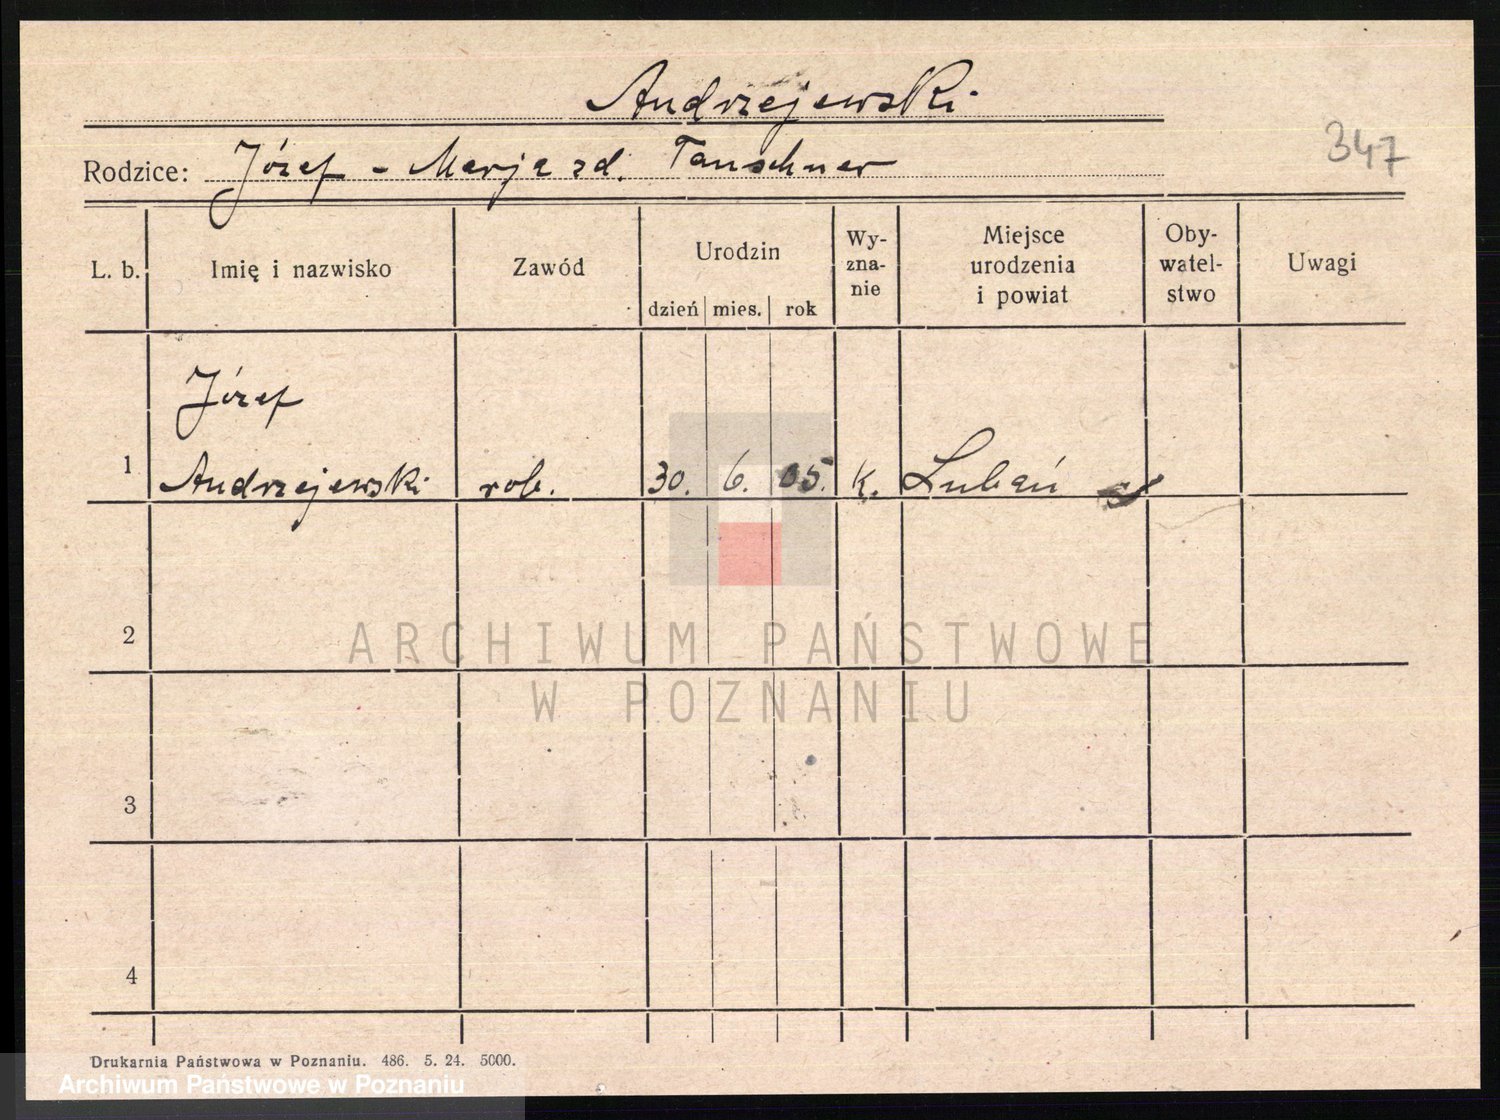 Andrzejewski
347
Rodzice: Józef - Marja zd. Tauschner
L. b.
Imię i nazwisko
Zawód
Urodzin
dzień
mies.
rok
Wy-
zna-
nie
Miejsce
urodzenia
i powiat
Oby-
watel-
stwo
Uwagi
Józef
1 Andrzejewski rob. 30. 6. 05. k. Lubań
2
ARCHIWUM PAŃSTWOWE
W POZNANIU
3
4
Drukarnia Państwowa w Poznaniu. 486. 5. 24. 5000.
Archiwum Państwowe w Poznaniu